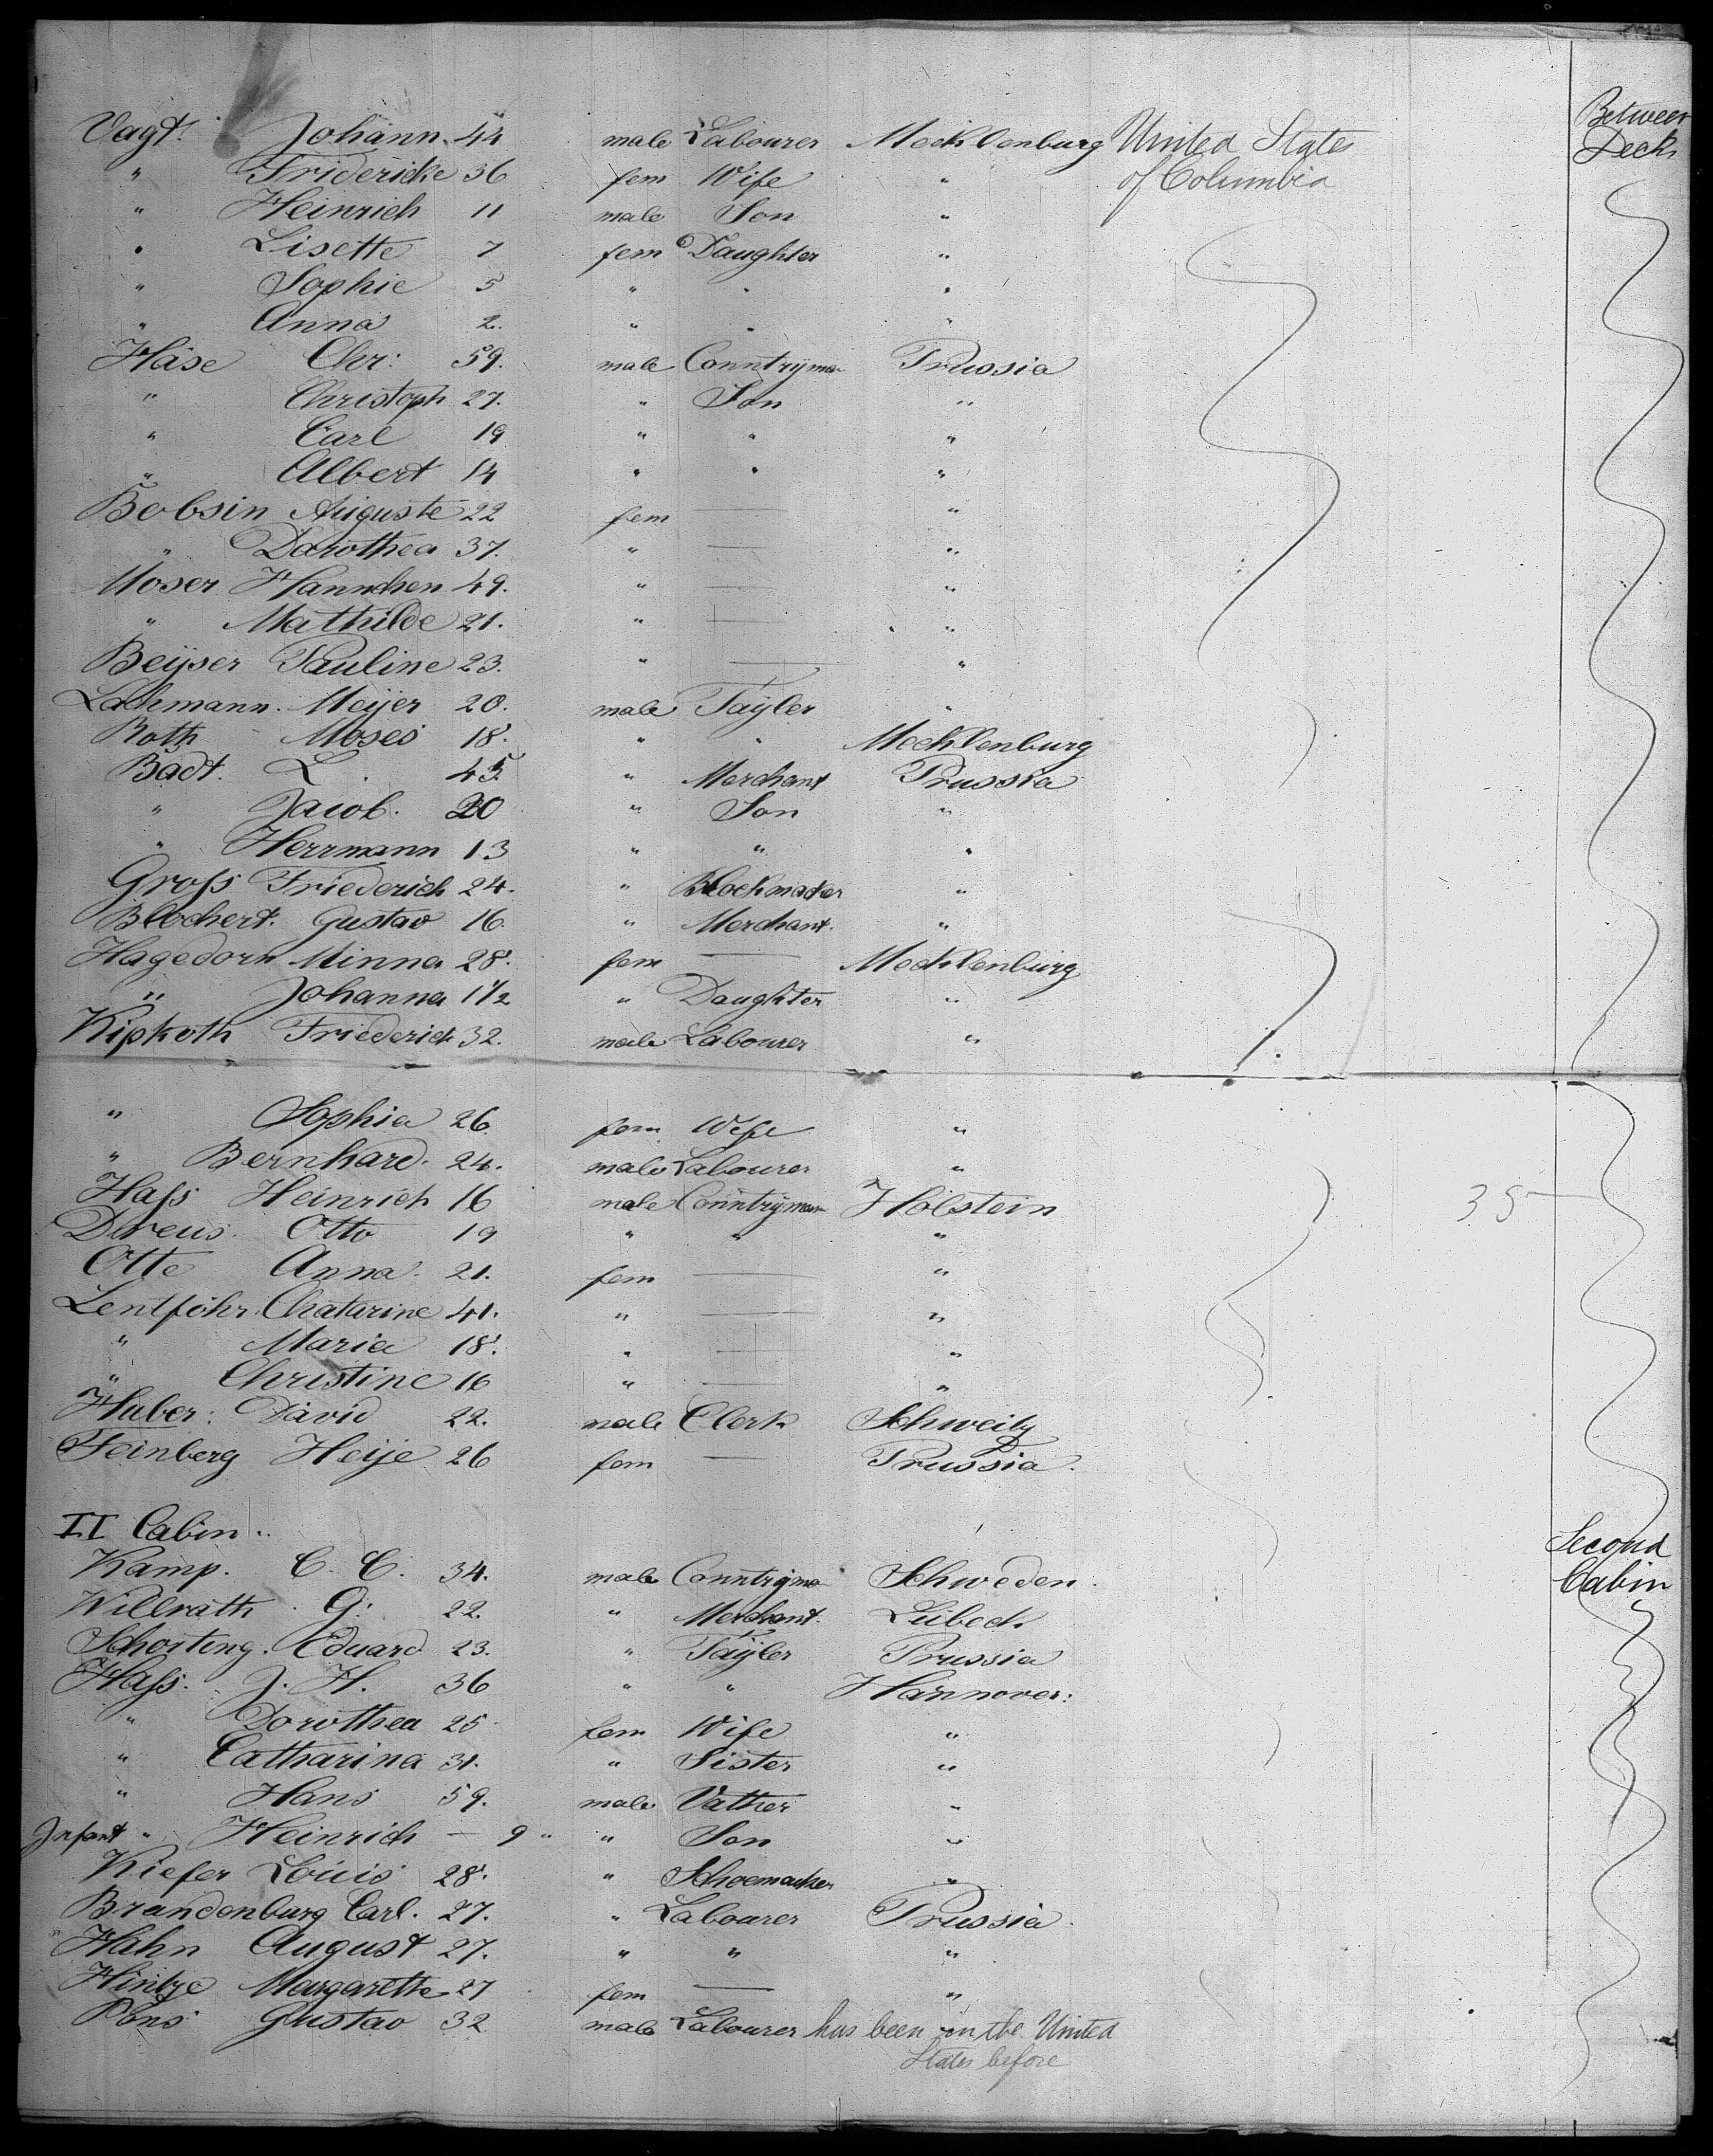 Vagt. Johann. 44 male Labourer Mecklenburg United States Between
" Fridericke 36 fem Wife " of Columbia Decks
" Heinrich 11 male Son "
" Lisette 7 fem Daughter "
" Sophie 5 " " "
" Anna 2. " " "
Häse Chr: 59. male Conntrÿman Prussia
" Christoph 27. " Son "
" Carl 19 " " "
" Albert 14 " " "
Bobsin Auguste 22 fem — "
" Dorothea 37. " — "
Moser Hannchen 49. " — "
" Mathilde 21. " — "
Beÿser Pauline 23. " — "
Lachmann. Meÿer 20. male Taÿler "
Roth Moses 18. " " Mecklenburg
Badt. L. 45. " Merchant Prussia
" Jacob. 20 " Son "
" Herrmann 13 " " "
Groſs Friederich 24. " Blockmacker "
Blochert. Gustav 16. " Merchant. "
Hagedorn Minna 28. fem — Mecklenburg
" Johanna 1 1/2 " Daughter "
Kipkoth Friederich 32. male Labourer "
" Sophia 26. fem Wife "
" Bernhard. 24. male Labourer "
Haſs Heinrich 16 male Conntrÿman Holstein 35 —
Dreus. Otto 19 " " "
Otte Anna. 21. fem — "
Lentföhr. Chatarine 41. " — "
" Maria 18. " — "
" Christine 16 " — "
Huber: David 22. male Clerk Schweitz
Feinberg Heije 26 fem — Prussia.
II Cabin.. Second
Kamp. C. C. 34. male Conntrÿman Schweden. Cabin
Willrath. G: 22. " Merchant. Lübeck
Schorting. Eduard 23. " Taÿler Prussia
Haſs. J. H. 36 " " Hannover:
" Dorothea 25 fem Wife "
" Catharina 31. " Sister "
" Hans 59. male Vather "
Infant " Heinrich — 9 " " Son "
Kiefer Louis 28. " Schoemacker "
Brandenburg Carl. 27. " Labourer Prussia.
Hahn August 27. " " "
Hintze Margarethe 27 fem — "
Pens Gustav 32 male Labourer has been in the United
States before